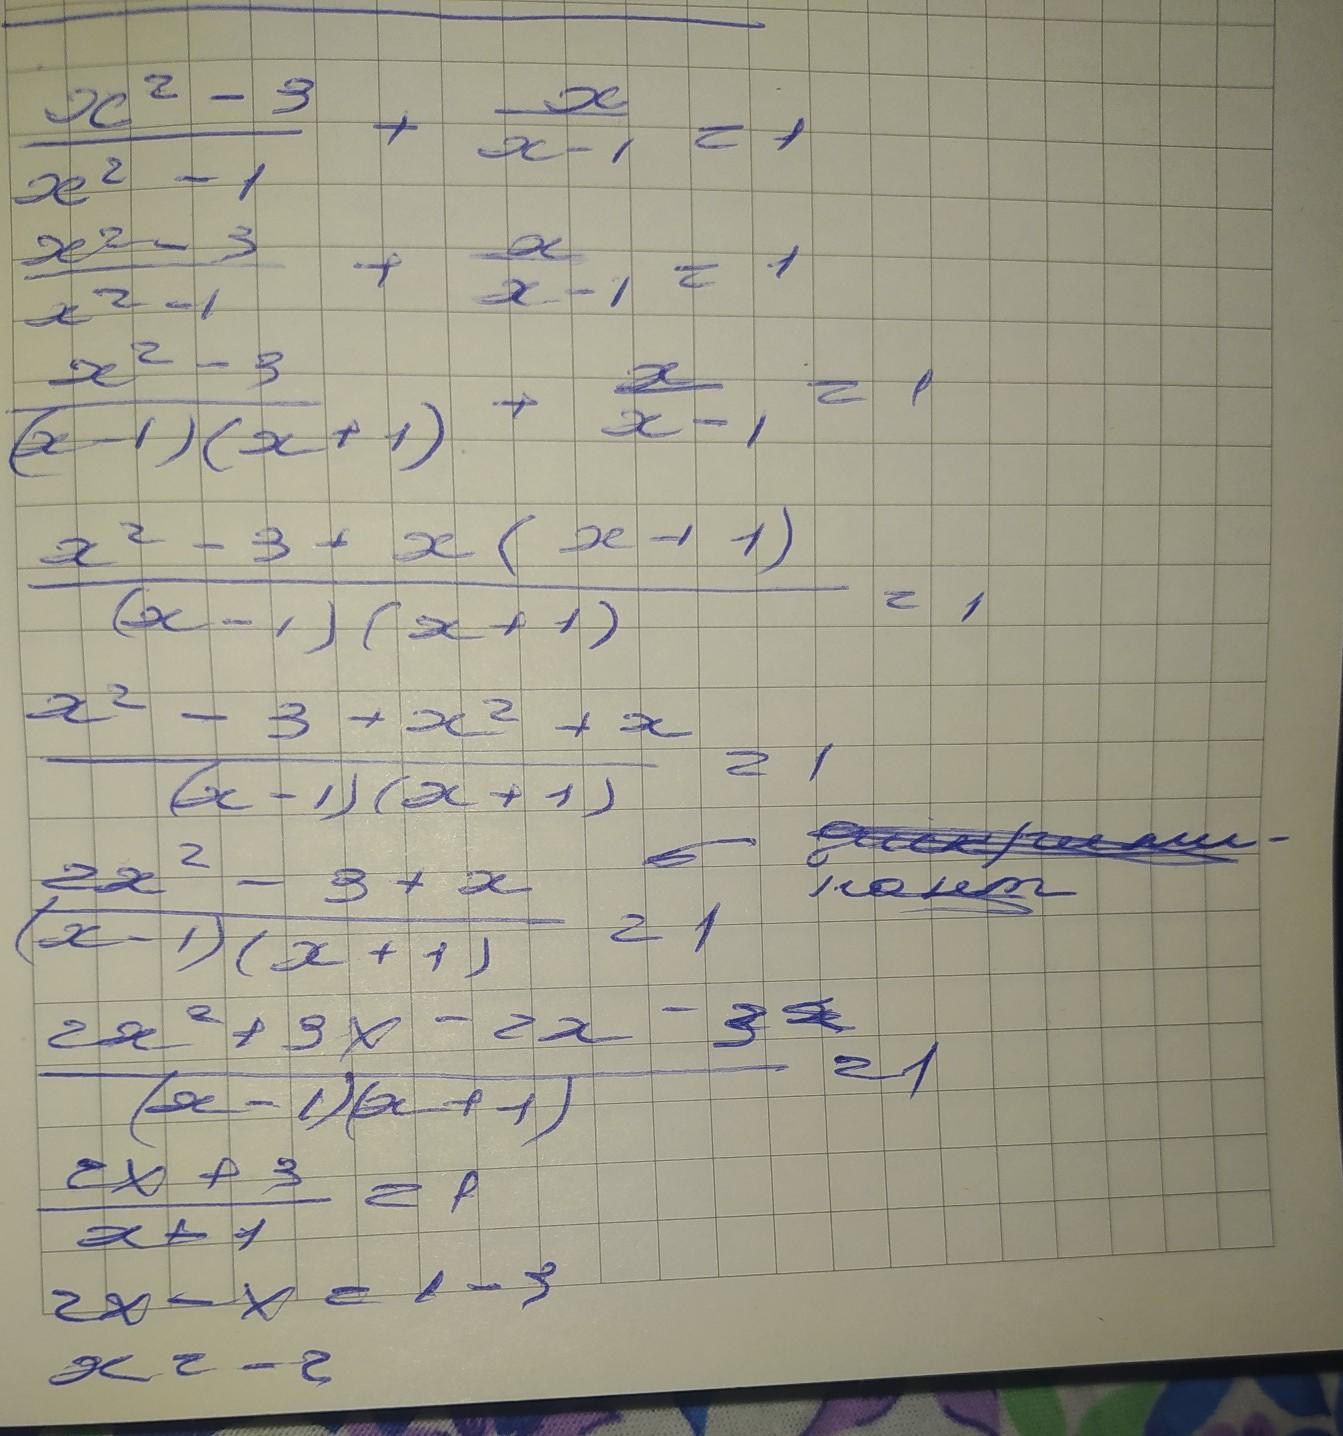 x² - 3 / x² - 1 + x / x - 1 = 1
x² - 3 / x² - 1 + x / x - 1 = 1
x² - 3 / (x - 1)(x + 1) + x / x - 1 = 1
x² - 3 + x(x + 1) / (x - 1)(x + 1) = 1
x² - 3 + x² + x / (x - 1)(x + 1) = 1
2x² - 3 + x / (x - 1)(x + 1) = 1 ←
2x² + 3x - 2x - 3 / (x - 1)(x + 1) = 1
2x + 3 / x + 1 = 1
2x - x = 1 - 3
x = -2